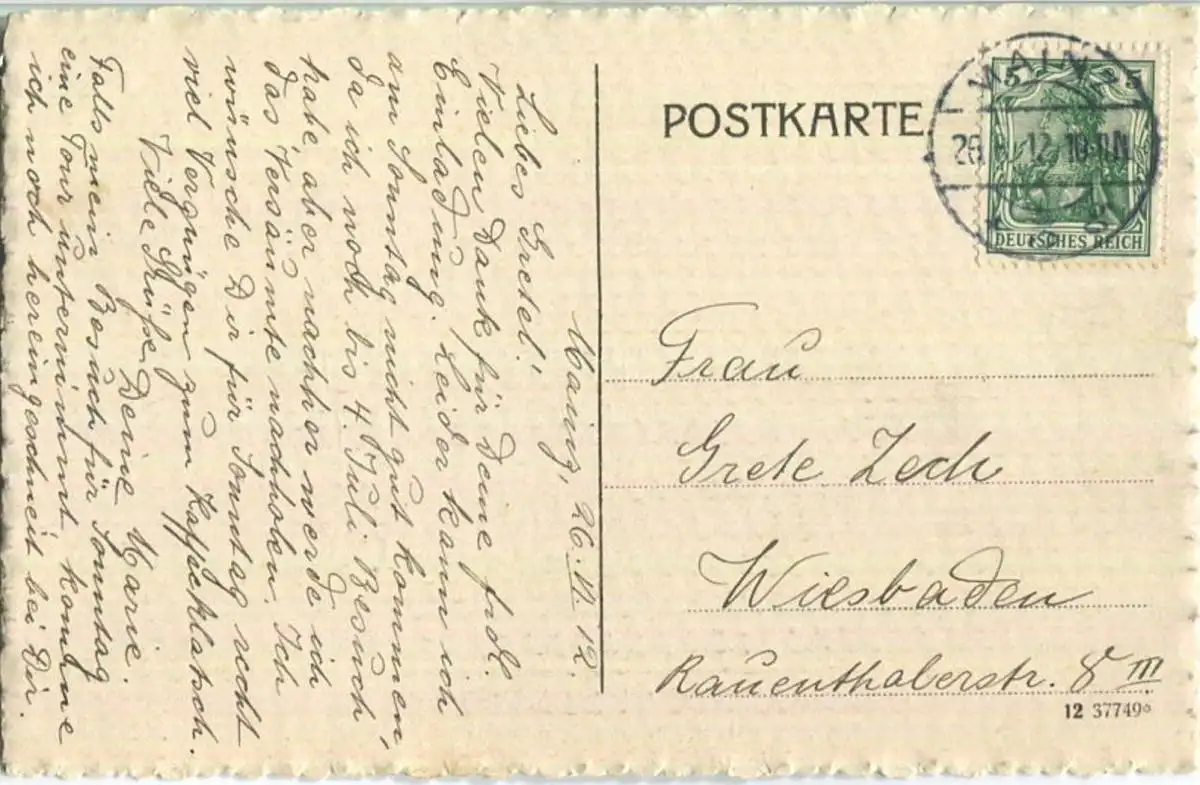 Mainz, 26.VI 12.
Liebes Gretel!
Vielen Dank für Deine frdl.
Einladung. Leider kann ich
am Sonntag nicht gut kommen,
da ich noch bis 4. Juli Besuch
habe aber nachher werde ich
das Versäumte nachholen. Ich
wünsche Dir für Sonntag recht
viel Vergnügen zum Kaffeeklatsch.
Viele Grüße Deine Marie.
Falls mein Besuch für Sonntag
eine Tour unternimmt komme
ich noch hereingeschneit bei Dir.
POSTKARTE
MAINZ
26. 12. 10-11N
5 5
DEUTSCHES REICH
Frau
Grete Zech
Wiesbaden
Rauenthalerstr. 8 III
12 37749